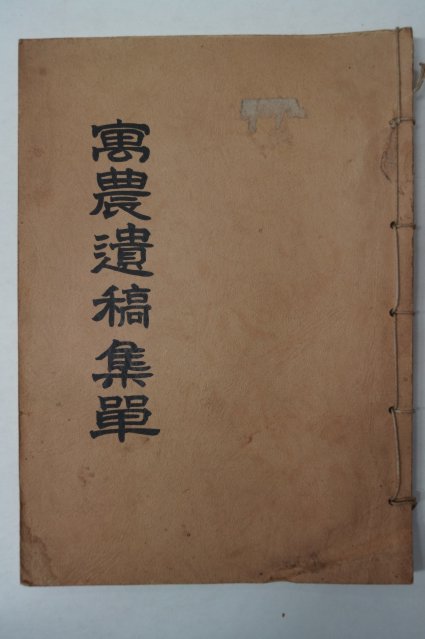 寓農遺稿集單